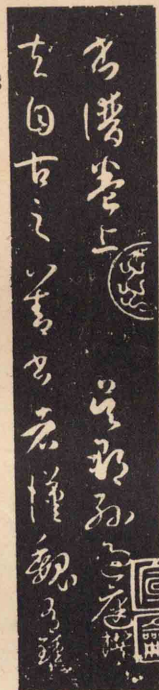 書譜卷上 吳郡孫過庭撰
夫自古之善書者漢魏有鍾